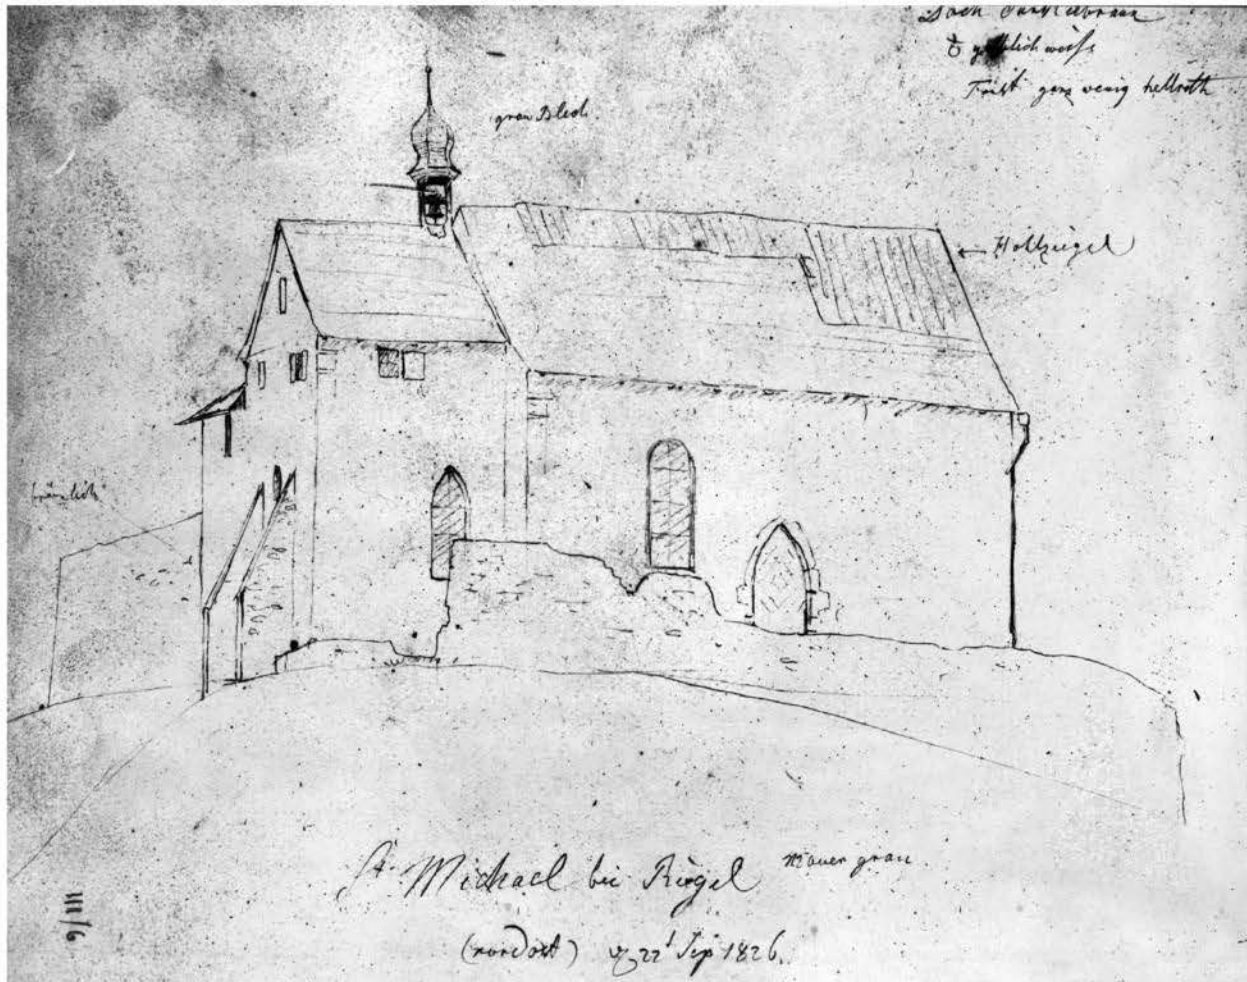 Dach dunkelbraun
gelblich weiß
First ganz wenig hellroth
grau Blech.
Hohlziegel
bräunlich
St. Michael bei Riegel
Mauer grau
(nordost) 22 Sep 1826.
III/6